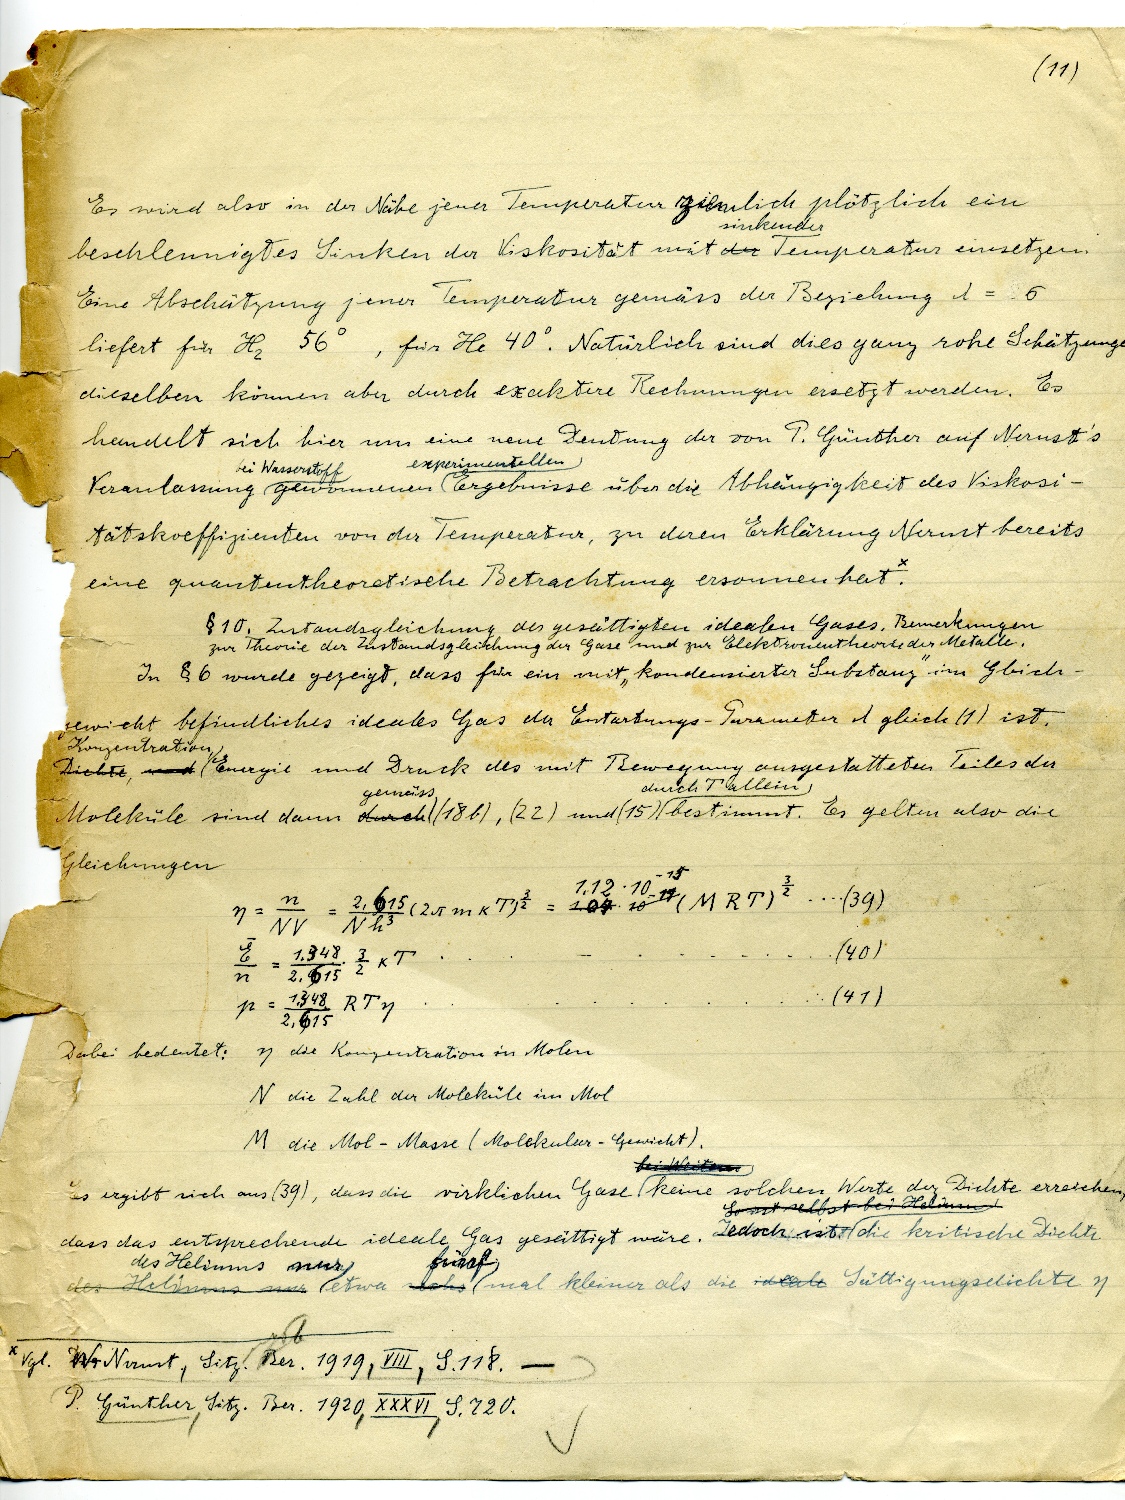 (11)
Es wird also in der Nähe jener Temperatur ziemlich plötzlich ein
sinkender
beschleunigtes Sinken der Viskosität mit der Temperatur einsetzen.
Eine Abschätzung jener Temperatur gemäss der Beziehung λ = 6
liefert für H₂ 56°, für He 40°. Natürlich sind dies ganz rohe Schätzunge
dieselben können aber durch exaktere Rechnungen ersetzt werden. Es
handelt sich hier um eine neue Deutung der von P. Günther auf Nernst's
bei Wasserstoff experimentellen
Veranlassung gewonnenen Ergebnisse über die Abhängigkeit des Viskosi-
tätskoeffizienten von der Temperatur, zu deren Erklärung Nernst bereits
eine quantentheoretische Betrachtung ersonnen hat.ˣ
§10. Zustandsgleichung des gesättigten idealen Gases. Bemerkungen
zur Theorie der Zustandsgleichung der Gase und zur Elektronentheorie der Metalle.
In §6 wurde gezeigt, dass für ein mit „kondensierter Substanz" im Gleich-
gewicht befindliches ideales Gas der Entartungs-Parameter λ gleich (1) ist.
Konzentration,
Dichte, und Energie und Druck des mit Bewegung ausgestatteten Teiles der
gemäss durch T allein
Moleküle sind dann durch (18b), (22) und (15) bestimmt. Es gelten also die
Gleichungen
η = n/NV = 2,615/Nh³ (2π m κ T)^3/2 = 1.12 · 10⁻¹⁵ (M R T)^3/2 ....(39)
Ē/n = 1.348/2.615 · 3/2 κT ....(40)
p = 1.348/2,615 R T η ....(41)
Dabei bedeutet: η die Konzentration in Molen
N die Zahl der Moleküle im Mol
M die Mol-Masse (Molekular-Gewicht).
bei Weitem
Es ergibt sich aus (39), dass die wirklichen Gase keine solchen Werte der Dichte erreichen,
So ist selbst bei Helium
dass das entsprechende ideale Gas gesättigt wäre. Jedoch ist die kritische Dichte
des Heliums nur fünf
des Heliums nur etwa sechs mal kleiner als die ideale Sättigungsdichte η
x Vgl. W. Nernst, Sitz. Ber. 1919, VIII, S. 118. —
P. Günther, Sitz. Ber. 1920, XXXVI, S. 720.